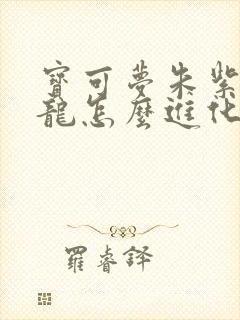 寶可夢朱紫
龍怎麼進化
羅睿鐸